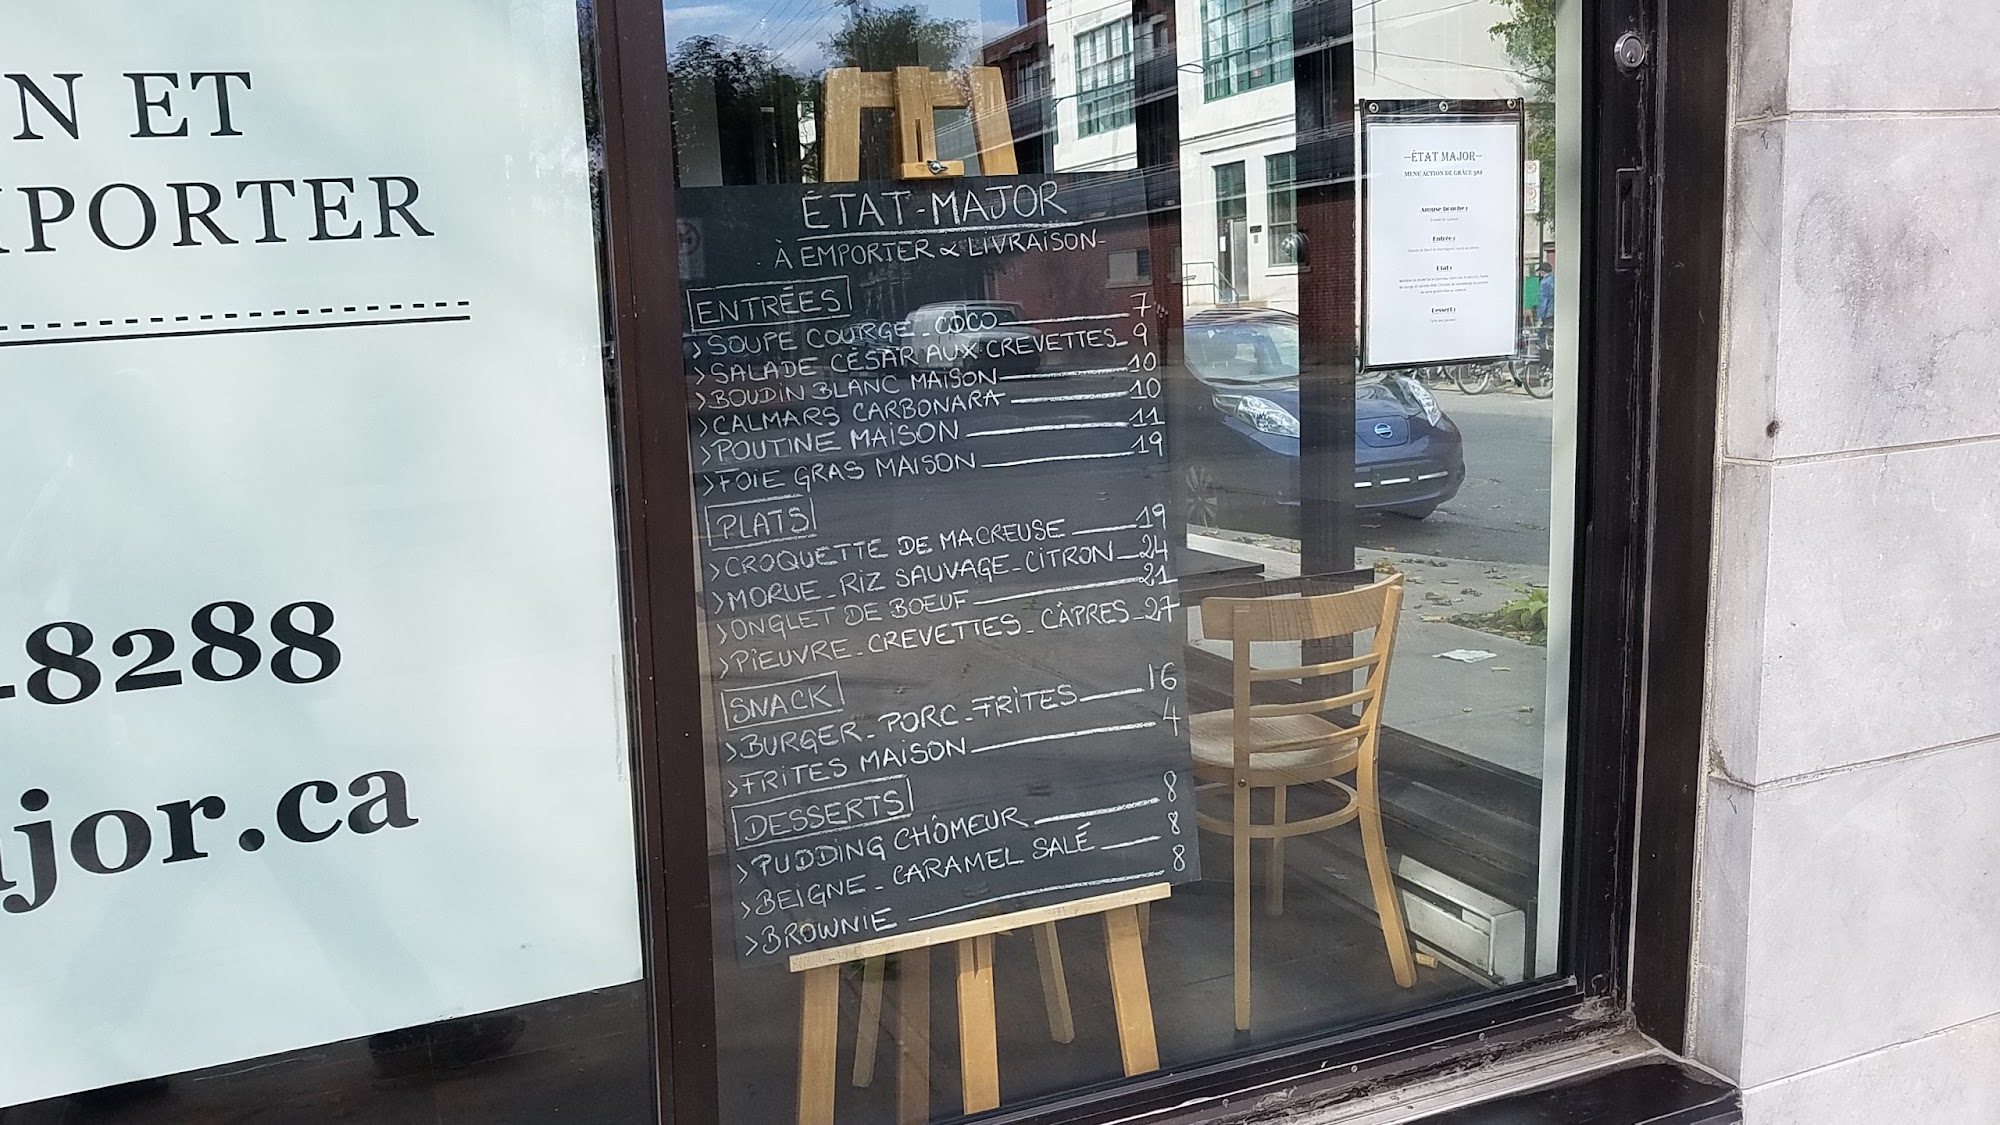 N ET
PORTER
-8288
jor.ca
ÉTAT-MAJOR
À EMPORTER & LIVRAISON-
ENTRÉES
>SOUPE COURGE - COCO 7
>SALADE CÉSAR AUX CREVETTES 9
>BOUDIN BLANC MAISON 10
>CALMARS CARBONARA 10
>POUTINE MAISON 11
>FOIE GRAS MAISON 19
PLATS
>CROQUETTE DE MACREUSE 19
>MORUE - RIZ SAUVAGE - CITRON 24
>ONGLET DE BOEUF 21
>PIEUVRE - CREVETTES - CÂPRES 27
SNACK
>BURGER - PORC - FRITES 16
>FRITES MAISON 4
DESSERTS
>PUDDING CHÔMEUR 8
>BEIGNE - CARAMEL SALÉ 8
>BROWNIE 8
--ÉTAT MAJOR--
MENU ACTION DE GRÂCE
Amuse bouche :
Entrée :
Plat :
Dessert :